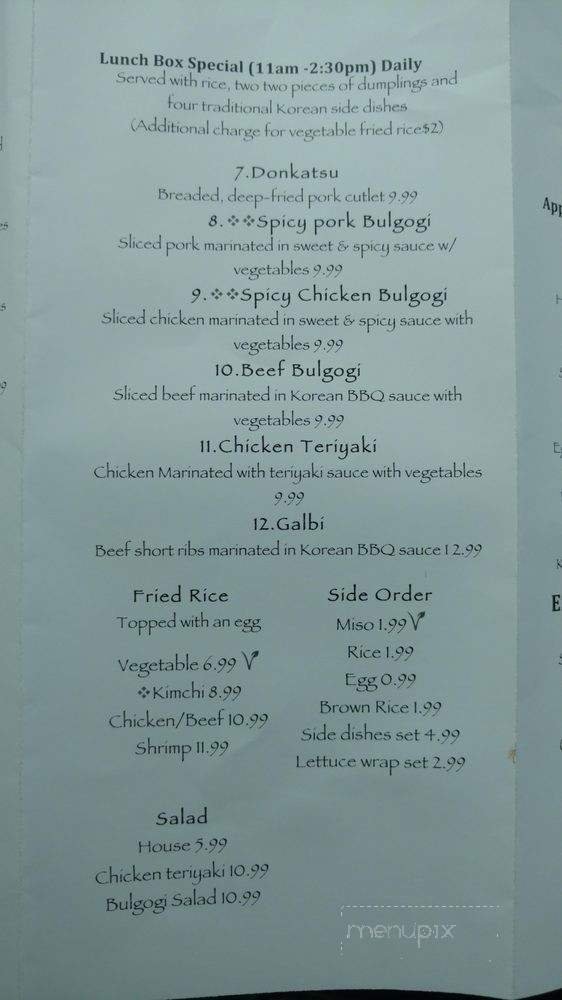 Lunch Box Special (11am -2:30pm) Daily
Served with rice, two two pieces of dumplings and
four traditional Korean side dishes
(Additional charge for vegetable fried rice$2)
7.Donkatsu
Breaded, deep-fried pork cutlet 9.99
8. ❖❖Spicy pork Bulgogi
Sliced pork marinated in sweet & spicy sauce w/
vegetables 9.99
9. ❖❖Spicy Chicken Bulgogi
Sliced chicken marinated in sweet & spicy sauce with
vegetables 9.99
10.Beef Bulgogi
Sliced beef marinated in Korean BBQ sauce with
vegetables 9.99
11.Chicken Teriyaki
Chicken Marinated with teriyaki sauce with vegetables
9.99
12.Galbi
Beef short ribs marinated in Korean BBQ sauce 12.99
Fried Rice
Topped with an egg
Vegetable 6.99
❖Kimchi 8.99
Chicken/Beef 10.99
Shrimp 11.99
Side Order
Miso 1.99
Rice 1.99
Egg 0.99
Brown Rice 1.99
Side dishes set 4.99
Lettuce wrap set 2.99
Salad
House 5.99
Chicken teriyaki 10.99
Bulgogi Salad 10.99
menupix